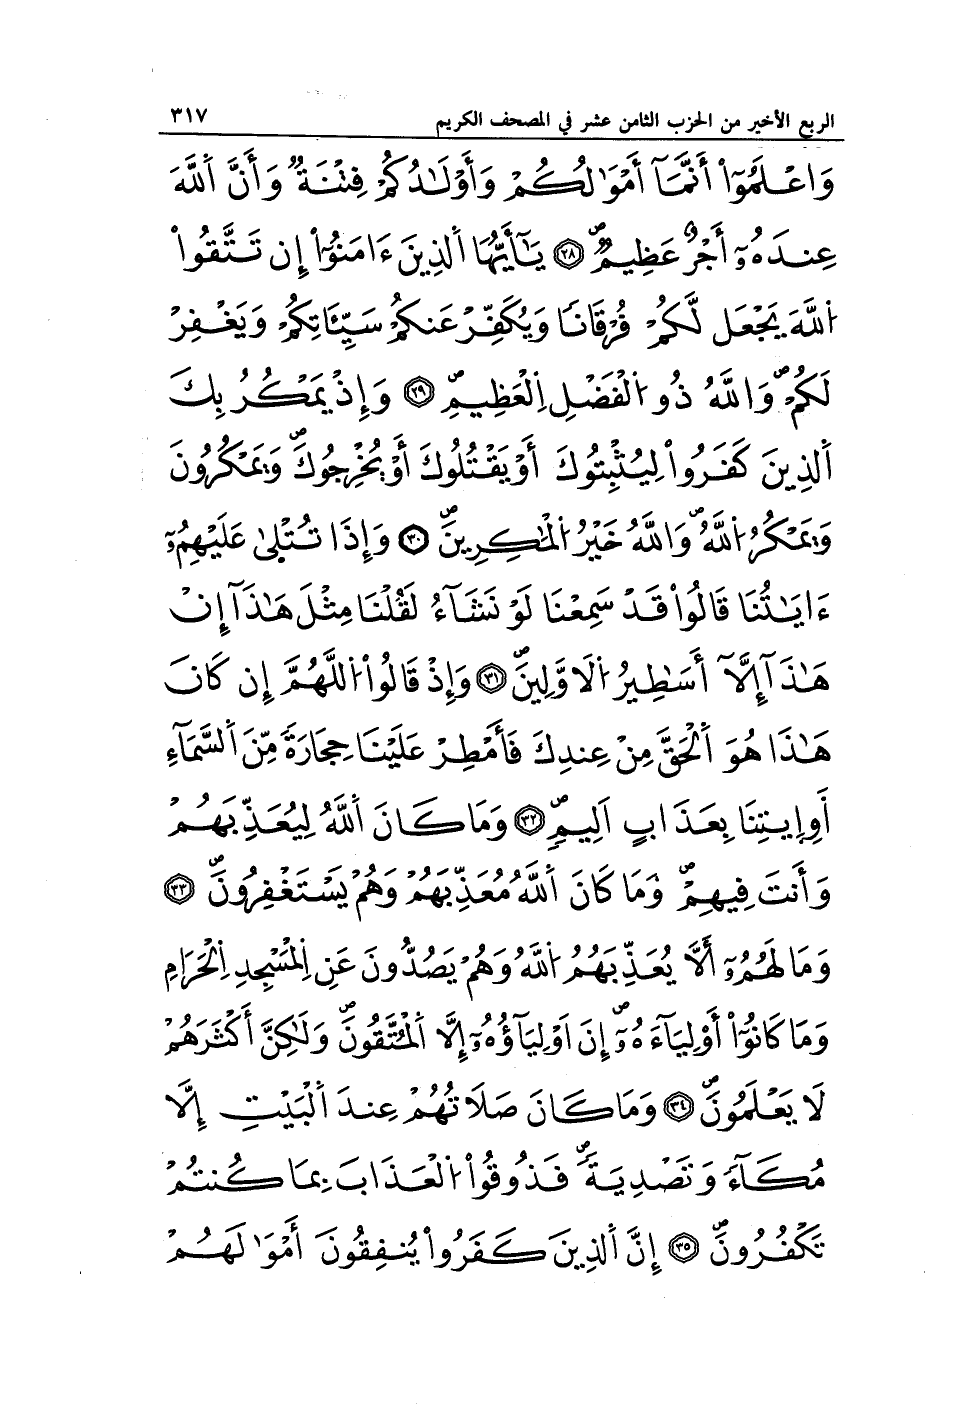 الربع الأخير من الحزب الثامن عشر في المصحف الكريم ٣١٧
وَاعْلَمُوٓاْ أَنَّمَآ أَمْوَٰلُكُمْ وَأَوْلَٰدُكُمْ فِتْنَةٌ وَأَنَّ اَللَّهَ
عِندَهُۥٓ أَجْرٌ عَظِيمٌ ٢٨ يَٰٓأَيُّهَا اَلذِينَ ءَامَنُوٓاْ إِن تَتَّقُواْ
اُللَّهَ يَجْعَل لَّكُمْ فُرْقَانًا وَيُكَفِّرْ عَنكُمْ سَيِّـَٔاتِكُمْ وَيَغْفِرْ
لَكُمْ وَاللَّهُ ذُو اُلْفَضْلِ اِلْعَظِيمِ ٢٩ وَإِذْ يَمْكُرُ بِكَ
اَلذِينَ كَفَرُواْ لِيُثْبِتُوكَ أَوْ يَقْتُلُوكَ أَوْ يُخْرِجُوكَ وَيَمْكُرُونَ
وَيَمْكُرُ اُللَّهُ وَاللَّهُ خَيْرُ اُلْمَٰكِرِينَ ٣٠ وَإِذَا تُتْلَىٰ عَلَيْهِمُۥٓ
ءَايَٰتُنَا قَالُواْ قَدْ سَمِعْنَا لَوْ نَشَآءُ لَقُلْنَا مِثْلَ هَٰذَآ إِنْ
هَٰذَآ إِلَّآ أَسَٰطِيرُ اُلَاوَّلِينَ ٣١ وَإِذْ قَالُواْ اُللَّهُمَّ إِن كَانَ
هَٰذَا هُوَ اَلْحَقَّ مِنْ عِندِكَ فَأَمْطِرْ عَلَيْنَا حِجَارَةً مِّنَ اَلسَّمَآءِ
أَوِ اِيتِنَا بِعَذَابٍ اَلِيمٍ ٣٢ وَمَا كَانَ اَللَّهُ لِيُعَذِّبَهُمْ
وَأَنتَ فِيهِمْ وَمَا كَانَ اَللَّهُ مُعَذِّبَهُمْ وَهُمْ يَسْتَغْفِرُونَ ٣٣
وَمَا لَهُمُۥٓ أَلَّا يُعَذِّبَهُمُ اُللَّهُ وَهُمْ يَصُدُّونَ عَنِ اِلْمَسْجِدِ اِلْحَرَامِ
وَمَا كَانُوٓاْ أَوْلِيَآءَهُۥٓ إِنَ اَوْلِيَآؤُهُۥٓ إِلَّا اَلْمُتَّقُونَ وَلَٰكِنَّ أَكْثَرَهُمْ
لَا يَعْلَمُونَ ٣٤ وَمَا كَانَ صَلَاتُهُمْ عِندَ اَلْبَيْتِ إِلَّا
مُكَآءً وَتَصْدِيَةً فَذُوقُواْ اُلْعَذَابَ بِمَا كُنتُمْ
تَكْفُرُونَ ٣٥ إِنَّ اَلذِينَ كَفَرُواْ يُنفِقُونَ أَمْوَٰلَهُمْ